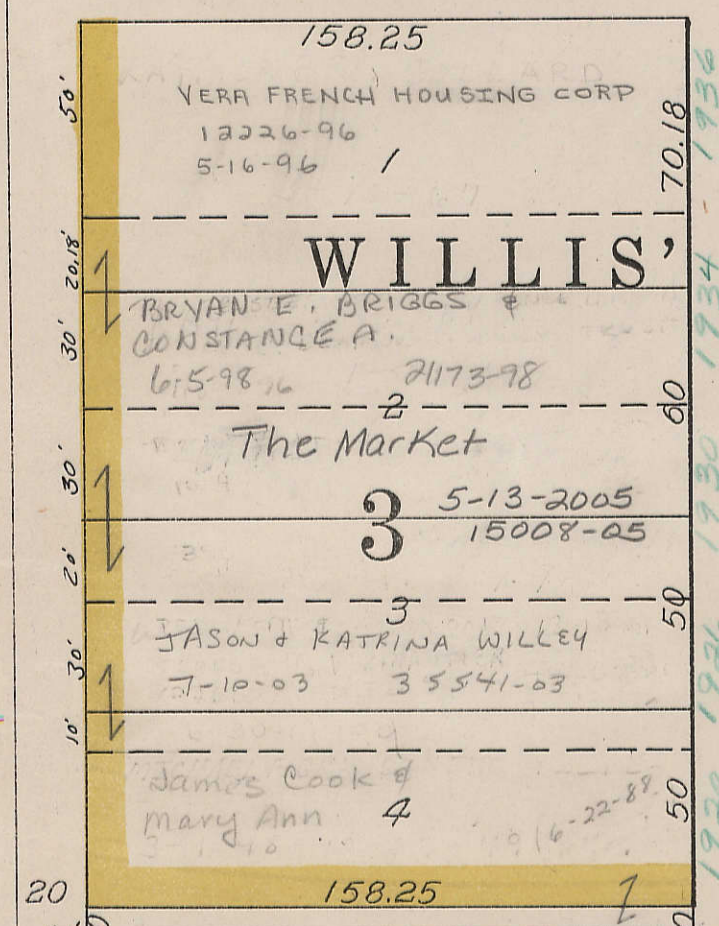 158.25
50'
VERA FRENCH HOUSING CORP
12226-96
5-16-96 1
70.18
20.18'
WILLIS'
BRYAN E. BRIGGS &
CONSTANCE A.
30'
6-5-98 21173-98
2
60
The Market
30'
3
5-13-2005
15008-05
20'
3
50
JASON & KATRINA WILLEY
30'
7-10-03 35541-03
10'
James Cook &
Mary Ann 4
6-22-88
50
20
158.25
1936
1934
1930